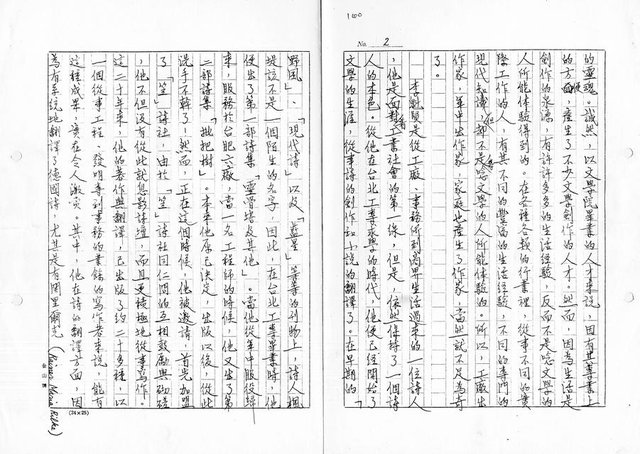 100
No. 2
的靈魂。誠然，以文學院畢業的人才來說，固有其專業上
的方便，產生了不少文學創作的人才。然而，因為生活是
創作的泉源，有許許多多的生活經驗，反而不是唸文學的
人所能體驗得到的。在各種各類的行業裡，從事不同的實
際工作的人，有其不同的豐富的生活經驗，不同的專門的
現代知識，都不是唸文學的人所能體驗的。所以，工廠出
作家，軍中出作家，家庭也產生了作家，當然就不足為奇
了。
李魁賢是從工廠、事務所到商界生活過來的一位詩人
，他是面對著工業社會的第一線，但是，依然保持了一個詩
人的本色。從他在台北工專求學的時代，他便已經開始了
文學的生涯，從事詩的創作和小說的翻譯了。在早期的「
野風」、「現代詩」以及「藍星」等等的刊物上，詩人楓
堤該不是一個陌生的名字，因此，在台北工專畢業時，他
便出了第一部詩集「靈骨塔及其他」。當他從軍中服役歸
來，服務於台肥六廠，當一名工程師的時候，他又出了第
二部詩集「枇杷樹」。本來他原已決定，出版以後，從此
洗手不幹了！然而，正在這個時候，他被邀請，首先加盟
了「笠」詩社，由於「笠」詩社同仁間的互相鼓勵與砌磋
，他不但沒有從此就息影詩壇，而且更積極地從事寫作。
這二十年來，他的著作與翻譯，已出版了約二十多種，以
一個從事工程、發明專利事務的業餘的寫作者來說，能有
這種成果，實在令人激賞。其中，他在詩的翻譯方面，因
為有系統地翻譯了德國詩，尤其是有關里爾克 (Rainer Maria Rilke)
(24×25)